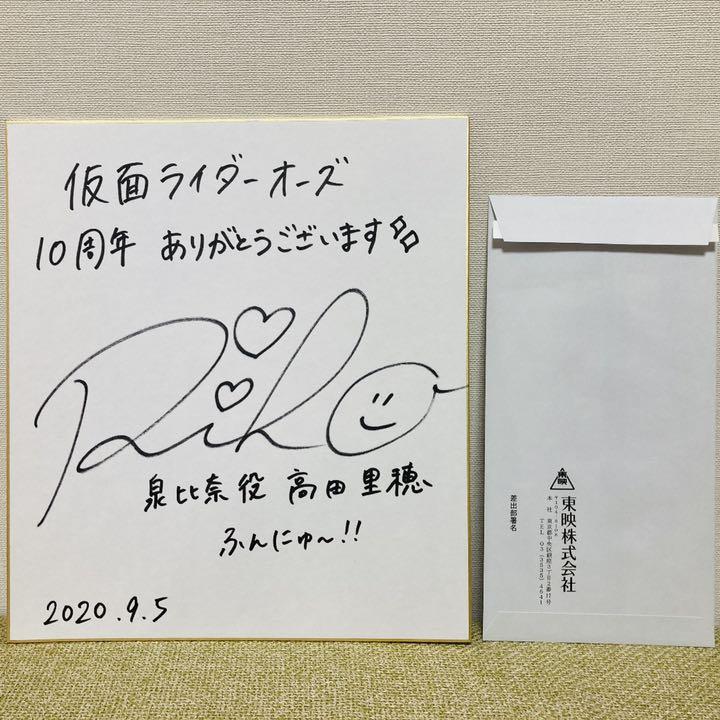 仮面ライダーオーズ
10周年 ありがとうございます
Riho
泉比奈役 高田里穂
ふんにゅ〜!!
2020.9.5
東映
東映株式会社
〒104-8108
本社 東京都中央区銀座3丁目2番17号
TEL 03(3535)4641
差出部署名